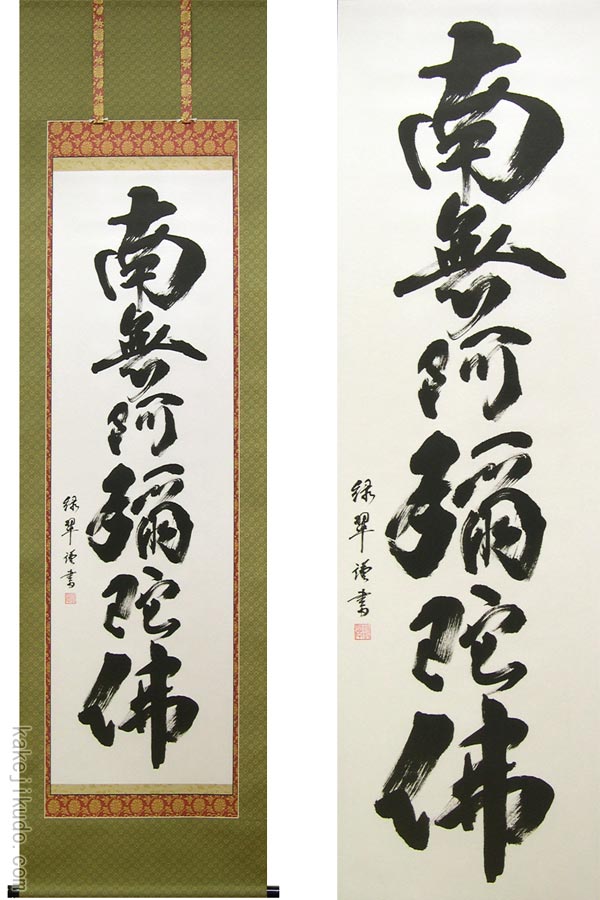 南無阿彌陀佛
緑翠謹書
南無阿彌陀佛
緑翠謹書
kakejikudo.com